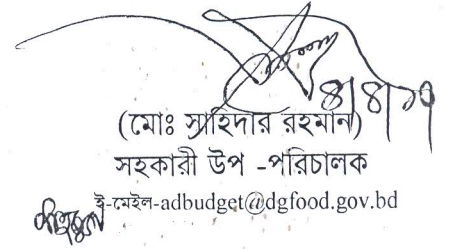 (মোঃ সাহিদার রহমান)
সহকারী উপ -পরিচালক
ই-মেইল-adbudget@dgfood.gov.bd